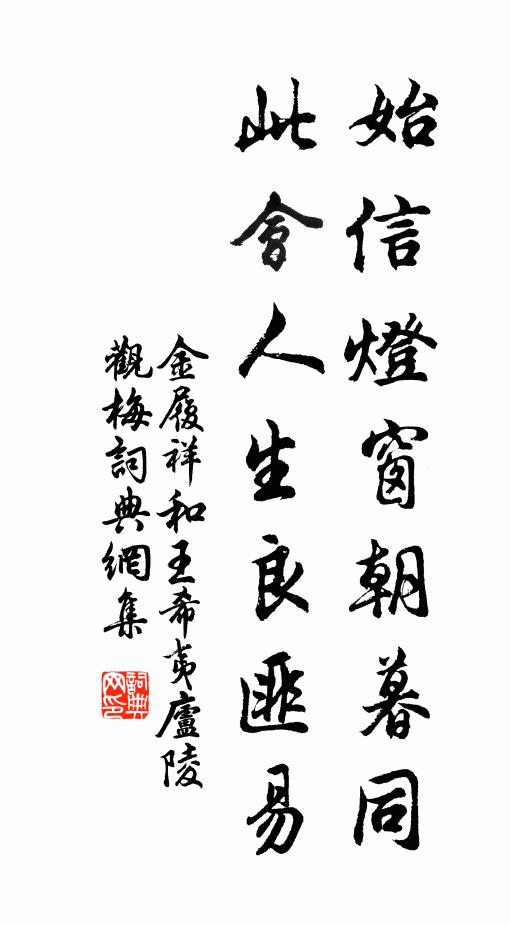 始信燈窗朝暮同
此會人生良匪易
金履祥和王希夷廬陵
觀梅詞典網集
詞典
网印